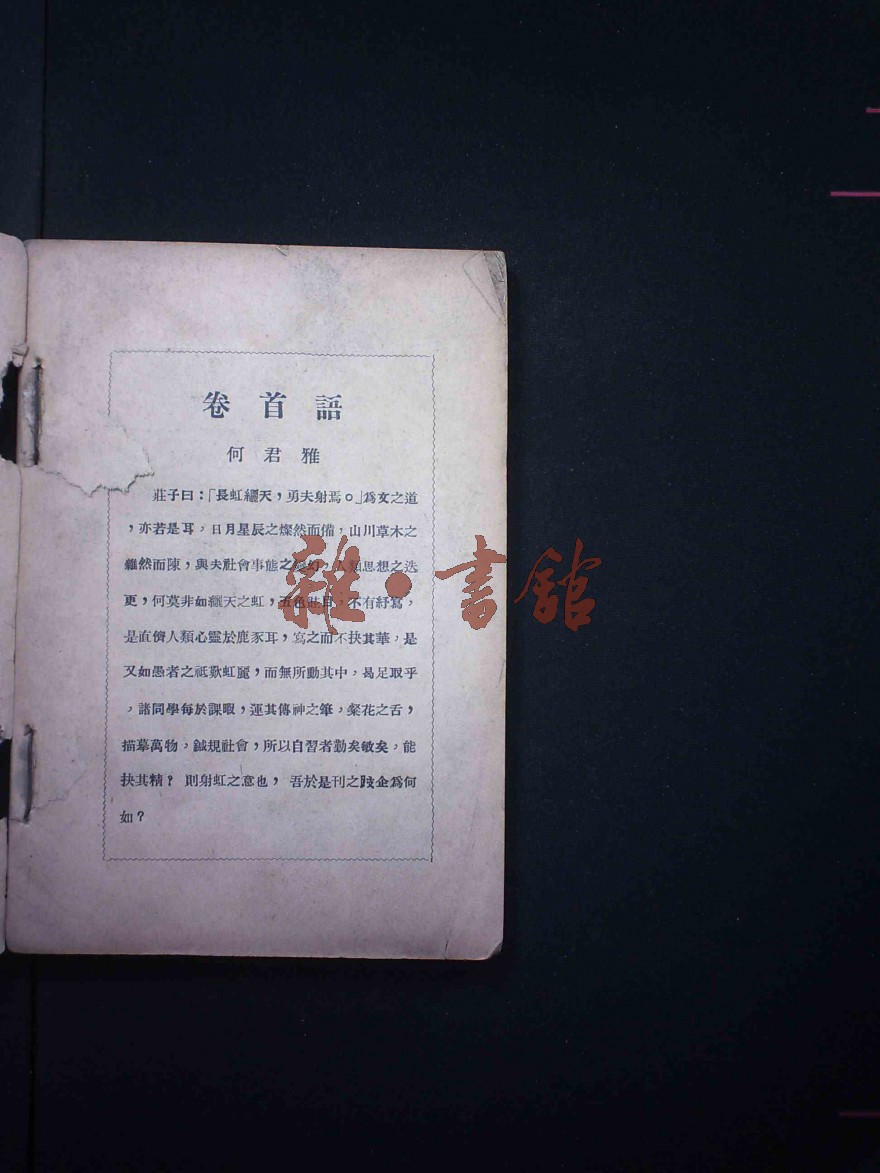 卷首語
何君雅
莊子曰:「長虹纚天,勇夫射焉。」爲文之道
,亦若是耳,日月星辰之燦然而備,山川草木之
雜然而陳,與夫社會事態之幻,人類思想之迭
更,何莫非如纚天之虹,五色目,不有紓寫,
是直儕人類心靈於鹿豕耳,寫之而不抉其華,是
又如愚者之祗歎虹麗,而無所動其中,曷足取乎
,諸同學每於課暇,運其傳神之筆,粲花之舌,
描摹萬物,鍼規社會,所以自習者勤矣敏矣,能
抉其精?則射虹之意也,吾於是刊之跂企爲何
如?
雜·書館